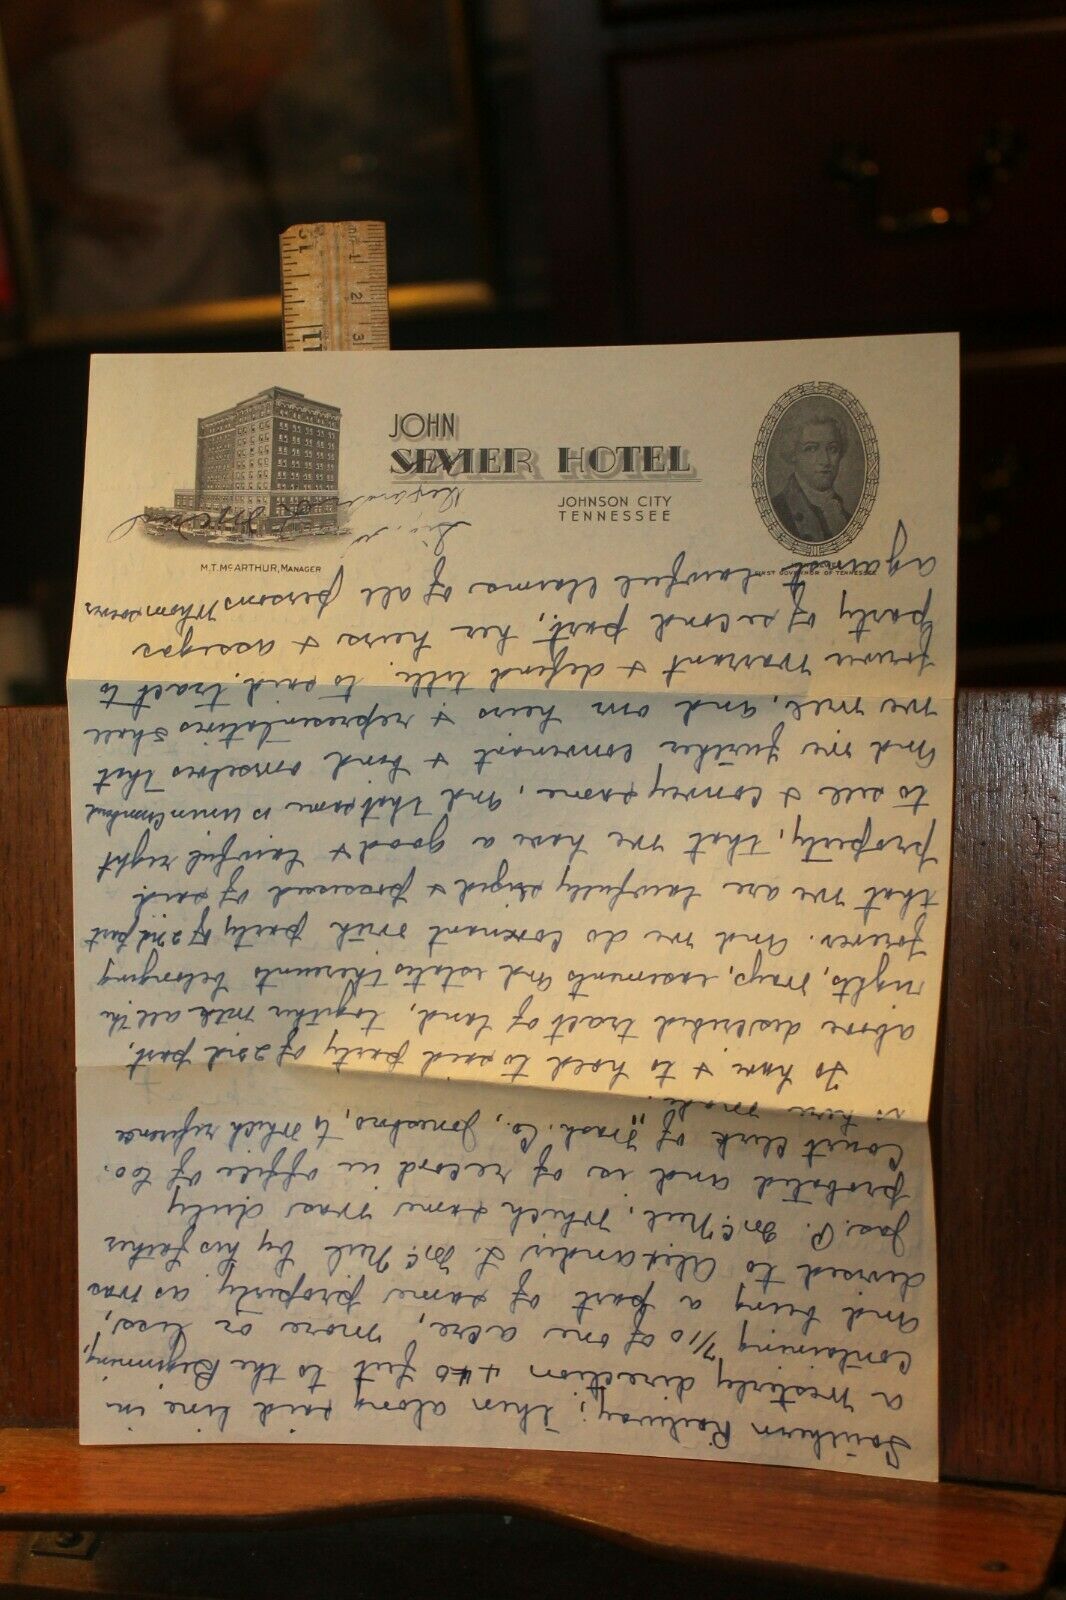 JOHN
SEVIER HOTEL
JOHNSON CITY
TENNESSEE
M.T. McARTHUR, MANAGER
FIRST GOVERNOR OF TENNESSEE
Southern Railway; then along said line in
a westerly direction 440 feet to the Beginning,
containing 7/10 of one acre, more or less,
and being a part of same property as was
devised to Alexander L. McNeil by his father
Jas. P. McNeil, which same was duly
probated and is of record in office of Co.
Court Clerk of Wash. Co., Jonesboro, to which reference
is here made.
To have & to hold to said party of 2nd part,
above described tract of land, together with all the
rights, ways, easements and estates thereunto belonging
forever. And we do covenant with party of 2nd part
that we are lawfully seized & possessed of said
property, that we have a good & lawful right
to sell & convey same, and that same is unincumbered
And we further covenant & bind ourselves that
we will, and our heirs & representatives shall
forever warrant & defend title to said tract to
party of second part, her heirs & assigns
against lawful claims of all persons whomsoever
11
1
2
3